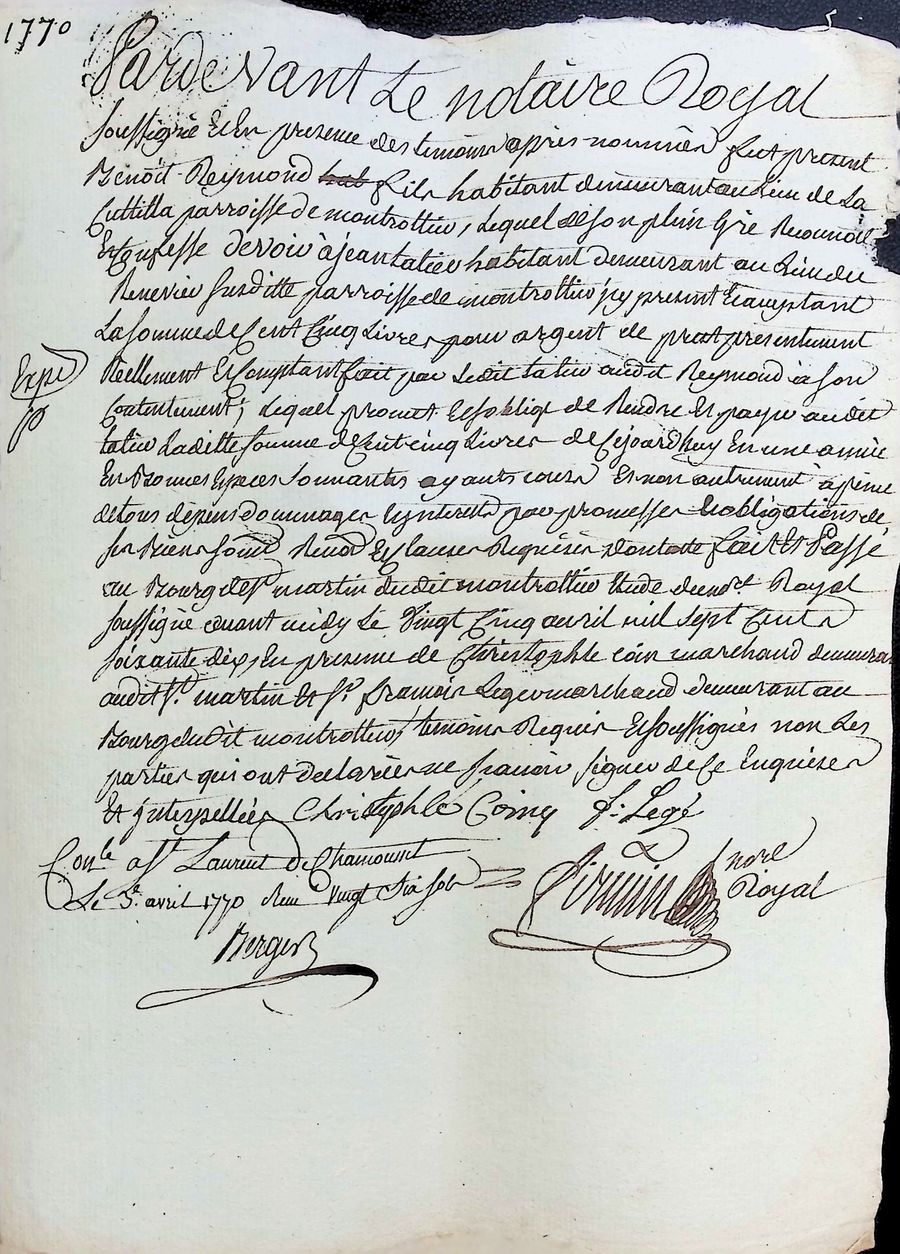 1770
5
Pardevant Le notaire Royal
soussigné Et En presence des temoins apres nommés fut present
Benoit Reymond hab fils habitant demeurant au Lieu de La
parroisse de montrottier, Lequel de son plein Gré Reconnoit
Et Confesse devoir à jean tatier habitant demeurant au Lieu du
Renevier susditte parroisse de montrottier jcy present Et acceptant
La somme de Cent Cinq Livres pour argent de pret presentement
Reellement Et Comptant fait par Ledit tatier audit Reymond à son
Contentement, Lequel promet Et soblige de Rendre Et payer audit
tatier Laditte somme de Cent cinq Livres de Cejourdhuy En une année
En Bonnes Especes sonnantes ayants cours Et non autrement à peine
de tous depens dommages Et jnterests par promesses Et obligations de
ses Biens soum. Renon. Et clauses Requises dont acte fait Et Passé
au Bourg de St martin dudit montrottier Etude du nore. Royal
soussigné avant midy Le Vingt Cinq avril mil sept Cents
soixante dix, En presence de Christophle Coin marchand demeurant
audit St. martin Et Sr. francois Legé marchand demeurant au
Bourg dudit montrottier, temoins Requis Et soussignés non Les
parties qui ont declarées ne scavoir signer de Ce Enquises
Et jnterpellées Christophle Coing f. Legé
Expé
Conlé a St Laurent De Chamousset
Le avril 1770 Reçu Vingt Six Sols
nore
Royal
Berger